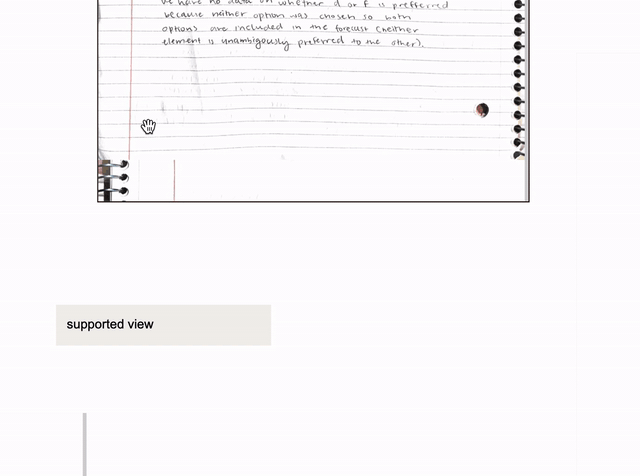 we have no data on whether d or f is prefferred
because neither option was chosen so both
options are included in the forecast (neither
element is unambigously preferred to the other).
supported view